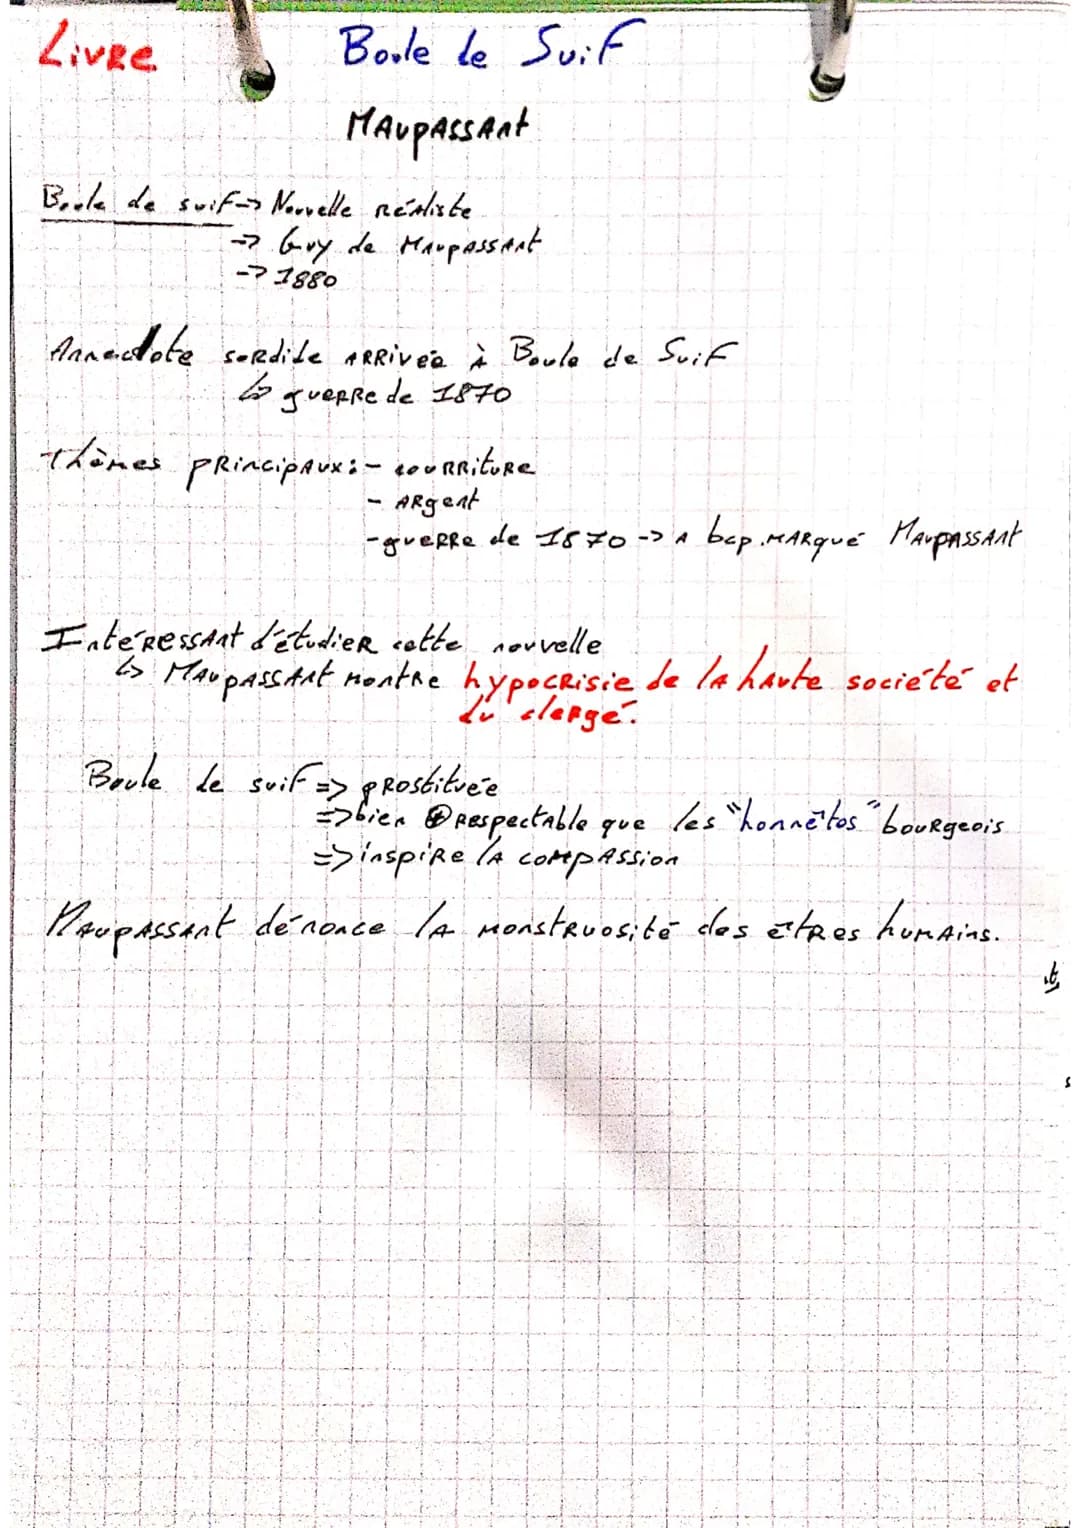 Livre
Boule de Suif
Maupassant
Boule de suif -> Nouvelle réaliste
-> Guy de Maupassant
-> 1880
Annecdote sordide arrivée à Boule de Suif
↳ guerre de 1870
Thèmes principaux : - nourriture
- Argent
- guerre de 1870 -> a bcp. marqué Maupassant
Intéressant d'étudier cette nouvelle
↳ Maupassant montre hypocrisie de la haute société et
du clergé.
Boule de suif => prostituée
=> bien ⊕ respectable que les "honnêtes" bourgeois
=> inspire la compassion
Maupassant dénonce la monstruosité des êtres humains.